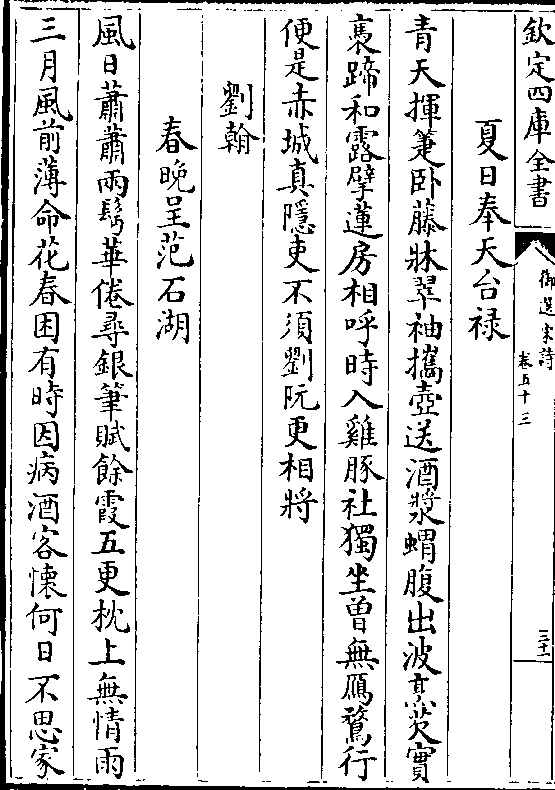 欽定四庫全書
御選宋詩
卷五十三
三十二
夏日奉天台祿
青天揮箑卧藤牀翠袖攜壺送酒漿蝟腹出波烹芡實
褭蹄和露擘蓮房相呼時入雞豚社獨坐曽無鴈鶩行
便是赤城真隱吏不須劉阮更相將
劉翰
春晚呈范石湖
風日蕭蕭兩鬂華倦尋銀筆賦餘霞五更枕上無情雨
三月風前薄命花春困有時因病酒客懐何日不思家